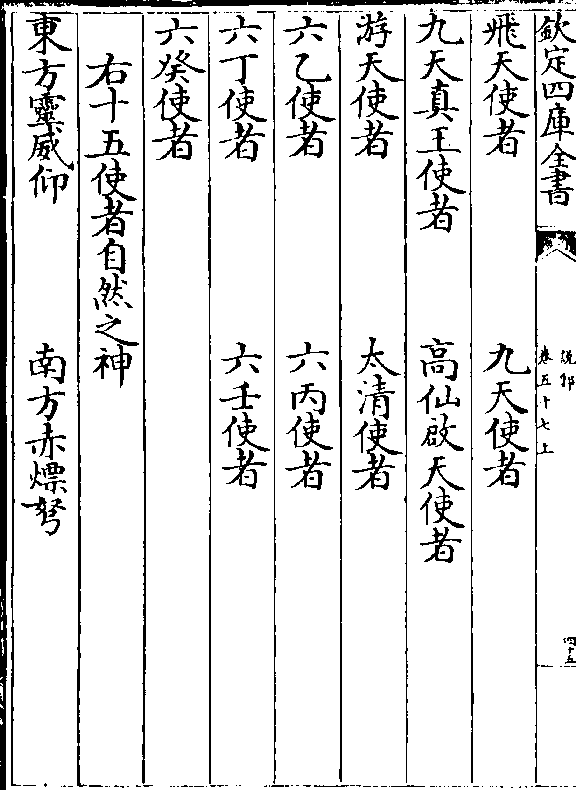 欽定四庫全書
說郛
卷五十七上
四十五
飛天使者 九天使者
九天真王使者 高仙啟天使者
游天使者 太清使者
六乙使者 六丙使者
六丁使者 六壬使者
六癸使者
右十五使者自然之神
東方靈威仰 南方赤熛弩